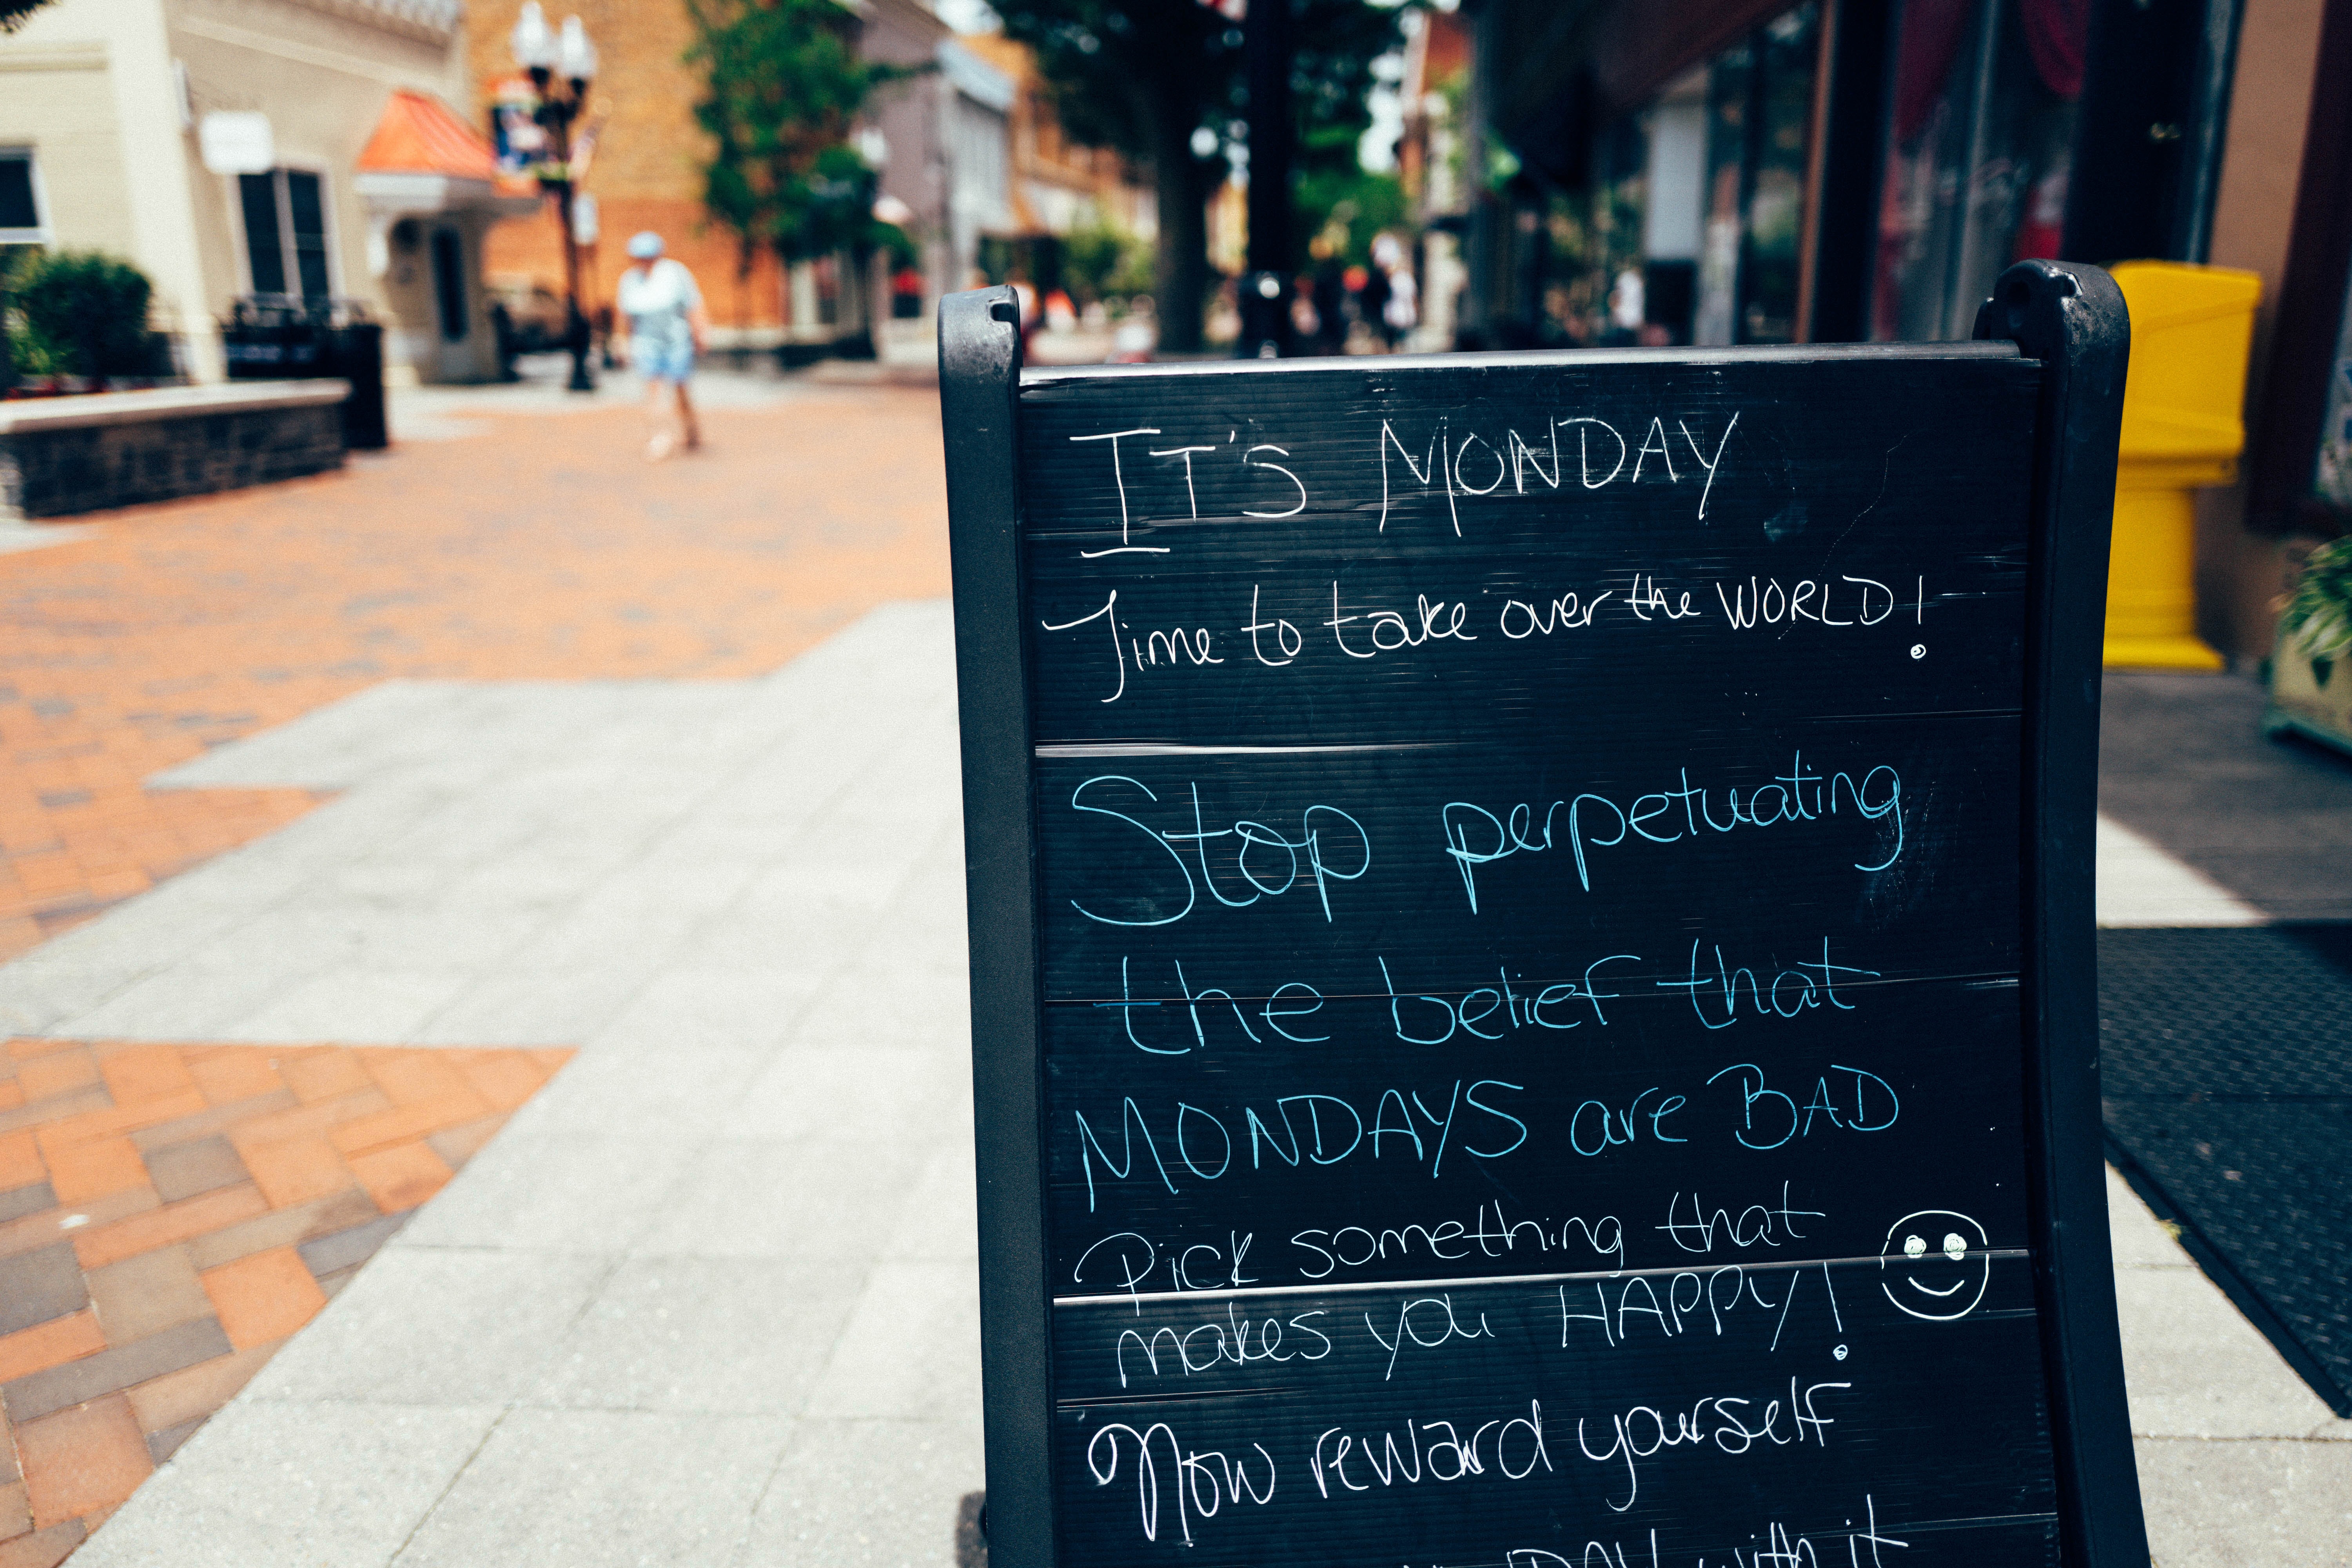 IT'S MONDAY
Time to take over the WORLD!
Stop perpetuating
the belief that
MONDAYS are BAD
Pick something that
makes you HAPPY!
Now reward yourself
with it